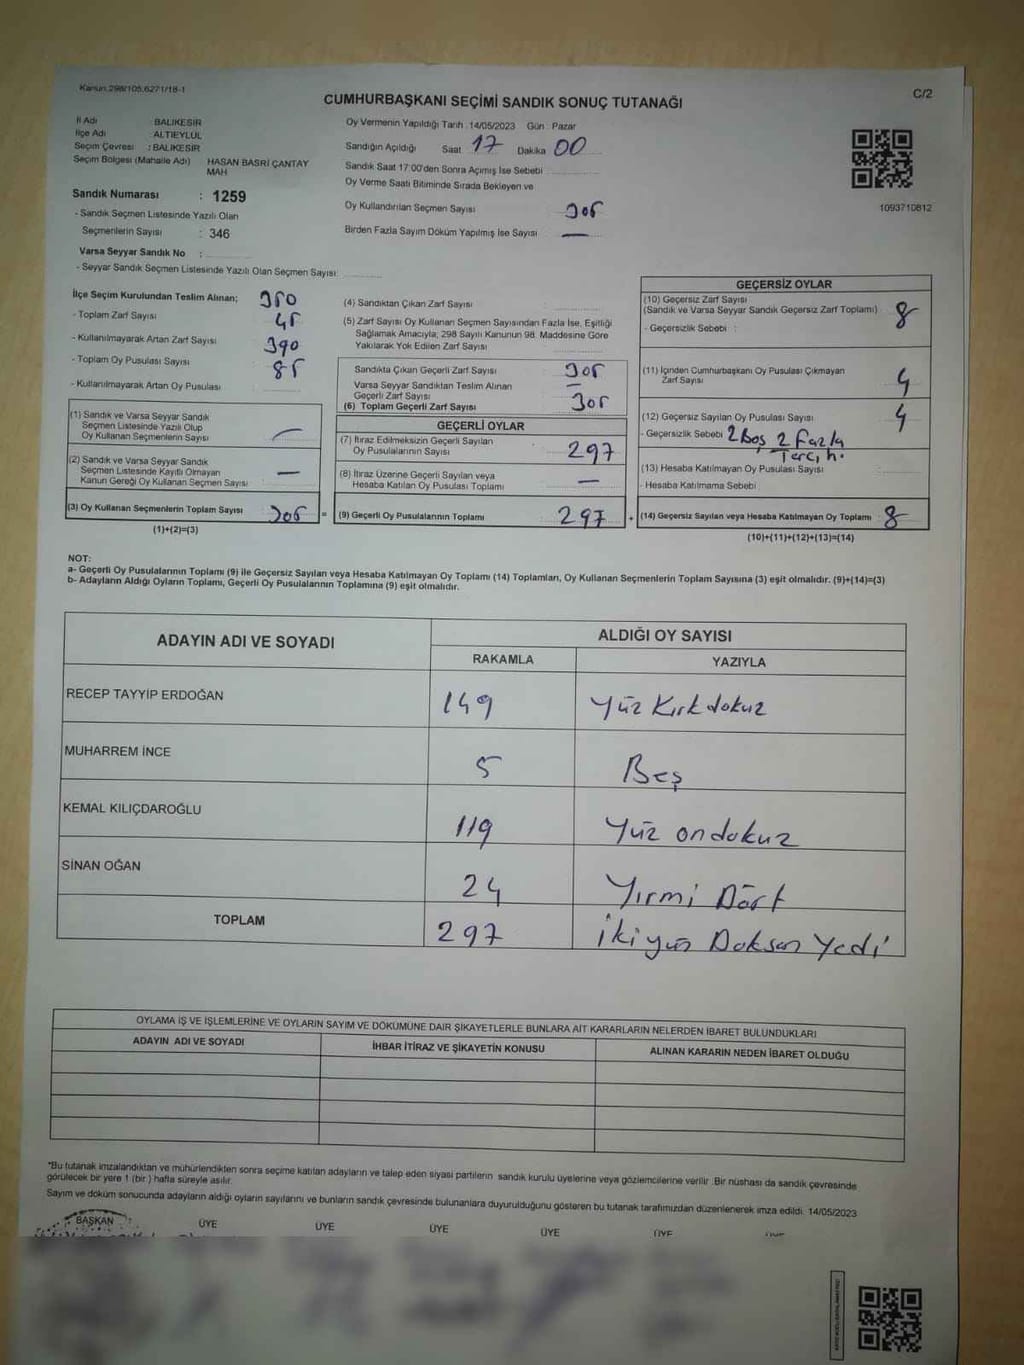 Kanun.298/105,6271/18-1
C/2
CUMHURBAŞKANI SEÇİMİ SANDIK SONUÇ TUTANAĞI
İl Adı : BALIKESİR
İlçe Adı : ALTIEYLÜL
Seçim Çevresi : BALIKESİR
Seçim Bölgesi (Mahalle Adı) HASAN BASRİ ÇANTAY MAH
Sandık Numarası : 1259
- Sandık Seçmen Listesinde Yazılı Olan
Seçmenlerin Sayısı : 346
Varsa Seyyar Sandık No :
- Seyyar Sandık Seçmen Listesinde Yazılı Olan Seçmen Sayısı:
Oy Vermenin Yapıldığı Tarih : 14/05/2023 Gün : Pazar
Sandığın Açıldığı Saat 17 Dakika 00
Sandık Saat 17:00'den Sonra Açımış İse Sebebi
Oy Verme Saati Bitiminde Sırada Bekleyen ve
Oy Kullandırılan Seçmen Sayısı 305
Birden Fazla Sayım Döküm Yapılmış İse Sayısı —
1093710812
İlçe Seçim Kurulundan Teslim Alınan;
- Toplam Zarf Sayısı 350
- Kullanılmayarak Artan Zarf Sayısı 45
- Toplam Oy Pusulası Sayısı 390
- Kullanılmayarak Artan Oy Pusulası 85
(1) Sandık ve Varsa Seyyar Sandık
Seçmen Listesinde Yazılı Olup
Oy Kullanan Seçmenlerin Sayısı —
(2) Sandık ve Varsa Seyyar Sandık
Seçmen Listesinde Kayıtlı Olmayan
Kanun Gereği Oy Kullanan Seçmen Sayısı —
(3) Oy Kullanan Seçmenlerin Toplam Sayısı 305 =
(1)+(2)=(3)
(4) Sandıktan Çıkan Zarf Sayısı
(5) Zarf Sayısı Oy Kullanan Seçmen Sayısından Fazla İse, Eşitliği
Sağlamak Amacıyla; 298 Sayılı Kanunun 98. Maddesine Göre
Yakılarak Yok Edilen Zarf Sayısı
Sandıkta Çıkan Geçerli Zarf Sayısı 305
Varsa Seyyar Sandıktan Teslim Alınan
Geçerli Zarf Sayısı —
(6) Toplam Geçerli Zarf Sayısı 305
GEÇERLİ OYLAR
(7) İtiraz Edilmeksizin Geçerli Sayılan
Oy Pusulalarının Sayısı 297
(8) İtiraz Üzerine Geçerli Sayılan veya
Hesaba Katılan Oy Pusulası Toplamı —
(9) Geçerli Oy Pusulalarının Toplamı 297 +
GEÇERSİZ OYLAR
(10) Geçersiz Zarf Sayısı
(Sandık ve Varsa Seyyar Sandık Geçersiz Zarf Toplamı) 8
- Geçersizlik Sebebi :
(11) İçinden Cumhurbaşkanı Oy Pusulası Çıkmayan
Zarf Sayısı 4
(12) Geçersiz Sayılan Oy Pusulası Sayısı 4
- Geçersizlik Sebebi 2 Boş 2 Fazla
Tercih.
(13) Hesaba Katılmayan Oy Pusulası Sayısı
- Hesaba Katılmama Sebebi
(14) Geçersiz Sayılan veya Hesaba Katılmayan Oy Toplamı 8
(10)+(11)+(12)+(13)=(14)
NOT:
a- Geçerli Oy Pusulalarının Toplamı (9) ile Geçersiz Sayılan veya Hesaba Katılmayan Oy Toplamı (14) Toplamları, Oy Kullanan Seçmenlerin Toplam Sayısına (3) eşit olmalıdır. (9)+(14)=(3)
b- Adayların Aldığı Oyların Toplamı, Geçerli Oy Pusulalarının Toplamına (9) eşit olmalıdır.
ADAYIN ADI VE SOYADI ALDIĞI OY SAYISI
RAKAMLA YAZIYLA
RECEP TAYYİP ERDOĞAN 149 Yüz Kırkdokuz
MUHARREM İNCE 5 Beş
KEMAL KILIÇDAROĞLU 119 Yüz ondokuz
SİNAN OĞAN 24 Yirmi Dört
TOPLAM 297 ikiyüz Doksan Yedi
OYLAMA İŞ VE İŞLEMLERİNE VE OYLARIN SAYIM VE DÖKÜMÜNE DAİR ŞİKAYETLERLE BUNLARA AİT KARARLARIN NELERDEN İBARET BULUNDUKLARI
ADAYIN ADI VE SOYADI İHBAR İTİRAZ VE ŞİKAYETİN KONUSU ALINAN KARARIN NEDEN İBARET OLDUĞU
*Bu tutanak imzalandıktan ve mühürlendikten sonra seçime katılan adayların ve talep eden siyasi partilerin sandık kurulu üyelerine veya gözlemcilerine verilir. Bir nüshası da sandık çevresinde
görülecek bir yere 1 (bir) hafta süreyle asılır.
Sayım ve döküm sonucunda adayların aldığı oyların sayılarını ve bunların sandık çevresinde bulunanlara duyurulduğunu gösteren bu tutanak tarafımızdan düzenlenerek imza edildi. 14/05/2023
BAŞKAN ÜYE ÜYE ÜYE ÜYE ÜYE